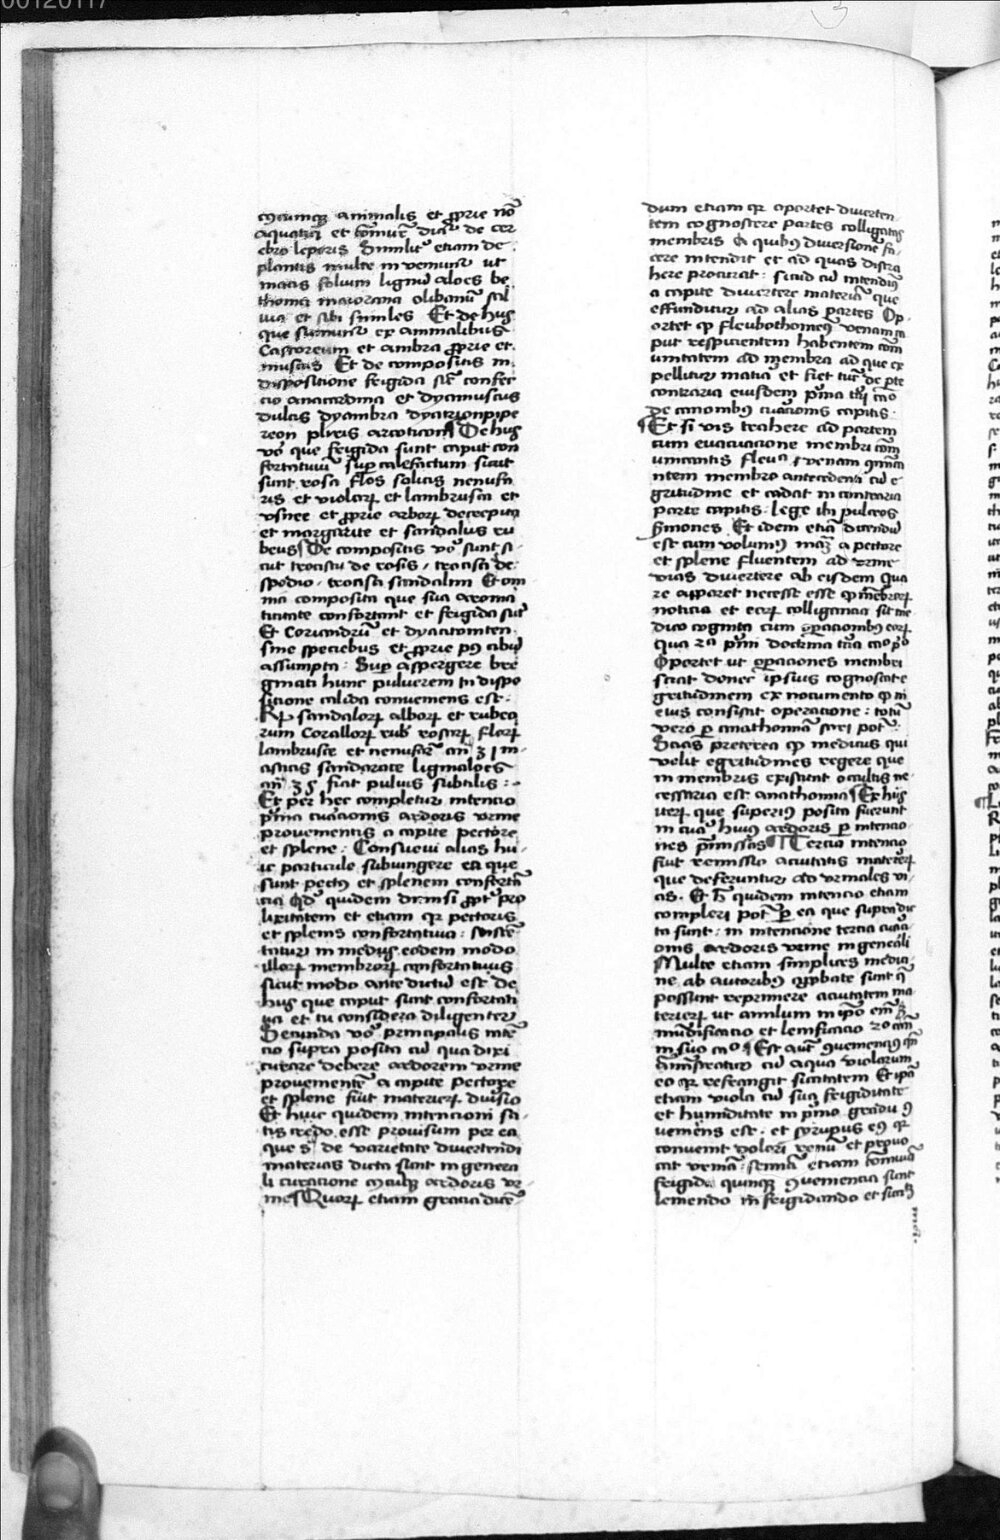 00120117
cuiuscumqȝ animalis et ꝓprie nō
aquaticꝝ et cōmuē dicꝝ de cer
ebro leporis Similitꝰ etiam de
plantis multe inveniunt̄ ut
macis folium lignū aloes be
thonica maiorana olibanū sal
uia et sibi similes Et de hijs
que sumunt̄ ex animalibus
Castoreum et ambra ꝓprie et
muscus Et de compositis in
dispositione frigida sūt confec
cio anacardina et dyamuscus
dulcis dyambra dyatrionpipe
reon pliris arcoticon ¶ De hijs
vō que frigida sunt caput con
fortatiuū suꝑ calefactum sicut
sunt rosa flos solicis nenufa
ris et violarꝝ et lambrusca et
vsnee et ꝓprie arborꝝ decrepita
et margarite et sandalus ru
beus ¶ De compositis vō sunt si
cut trocisci de rosis / trocisci de
spodio / trocisci sandalini Et om
nia composita que sua aroma
ticitate confortant et frigida sūt
Et Coriandrū et dyacitoniten
sine speciebus et ꝓprie pꝰ cibū
assumpta : Suꝑ aspergere bre
gmati hunc puluerem in dispo
sicione calida conueniens est :
Rp sandalorꝝ alborꝝ et rubeo
rum Corallorꝝ rub rosarꝝ florꝝ
lambrusce et nenufarꝝ an̄ ʒ i m
asticis sandarace ligni aloes
an̄ ʒ ſ fiat puluis subtilis :
Et per hec completur intencio
pͥma curacionis ardoris vrine
prouenientis a capite pectore
et splene : Consueui alias hu
ic particule subiungere ea que
sunt pectꝰ et splenem confortā
cia Qd quidem dimisi ꝓpt̄ pro
lixitatem et etiam qꝛ pectoris
et splenis confortatiua : susten
tatur in medijs eodem modo
illorꝝ membrorꝝ confortatiuis
sicut modo ante dictū est de
hijs que caput sunt confortati
ua et tu considera diligenter
Secunda vō principalis intē
cio supra posita cū qua dixi
curare debere ardorem vrine
prouenientē a capite pectore
et splene fuit materierꝝ diuisio
Et huic quidem intencioni sa
tis credo esse prouisum per ea
que s de varietate diuertendi
materias dicta sunt in genera
li curacione cuiusqȝ ardoris vr
ine ¶ Quorꝝ etiam gracia dicē
dum etiam qꝛ oportet diuerten
tem cognoscere partes colligatas
membris A quibꝰ diuersionē fa
cere intendit et ad quas distra
here procurat : sicud cū intendimꝰ
a capite diuertere materiā que
effunditur ad alias partes Op
ortet ꝙ fleubothomemꝰ venam ca
put respicientem habentem com
unitatem ad membra ad que ex
pellitur matīa et fiet tūc de ꝑte
contraria eiusdem pͥma tͥ caͦ
de canonibꝰ curacionis capitis
¶ Et si vis trahere ad partem
cum euacuacione membri com
unicantis fleuᵃ venam comuni
ntem membro antecedenti cū e
gritudine et cadat in contraria
parte capitis : lege ibi pulcros
sermones Et idem etiā dicendū
est cum volumꝰ matᵃm a pectore
et splene fluentem ad vrine
vias diuertere ab eisdem Qua
re apparet necesse esse ꝙ mēbrorꝝ
noticia et eorꝝ colliganciā sit me
dico cognita cum oꝑacionibꝰ eorꝝ
Oportet ut oꝑaciones membri
sciat donec ipsius cognoscat e
gritudinem ex nocumento ꝙ in
eius consistit operacione : totū
vero ꝑ anathomiā sciri potꝰ
Scias preterea ꝙ medicus qui
velit egritudines regere que
in membris existunt occultis ne
cessaria est anathomia ¶ Ex hijs
iterꝝ que superiꝰ posita fuerunt
in cura huius ardoris ꝑ intencio
nes pͥmissas ¶ Tercia intencio
fuit remissio acuitatis materierꝝ
que deferuntur ad vrinales vi
as . Et h̄ quidem intencio etiam
compleri potꝰ ꝑ ea que supra dic
ta sunt : in intencione tercia curaci
onis ardoris vrine in generali
Multe etiam simplices medici
ne ab autoribꝰ ꝓbate sunt q̄
possunt reprimere acuitatem ma
terierꝝ ut amilum
mūdificacio et lenificacio
in suo caͦ ¶ Est autē
administratur cū aqua violarum
eo qꝛ refrangit siccitatem Et ipā
etiam viola cū sua frigiditate
et humiditate in pͥmo gradu ꝯ
ueniens est . et sirupus eiꝰ qꝛ
conuenit dolori renū et prouo
cat vrinā : semina etiam cōmunia
frigida quinqȝ ꝯueniencia sunt
leniendo in frigidando et